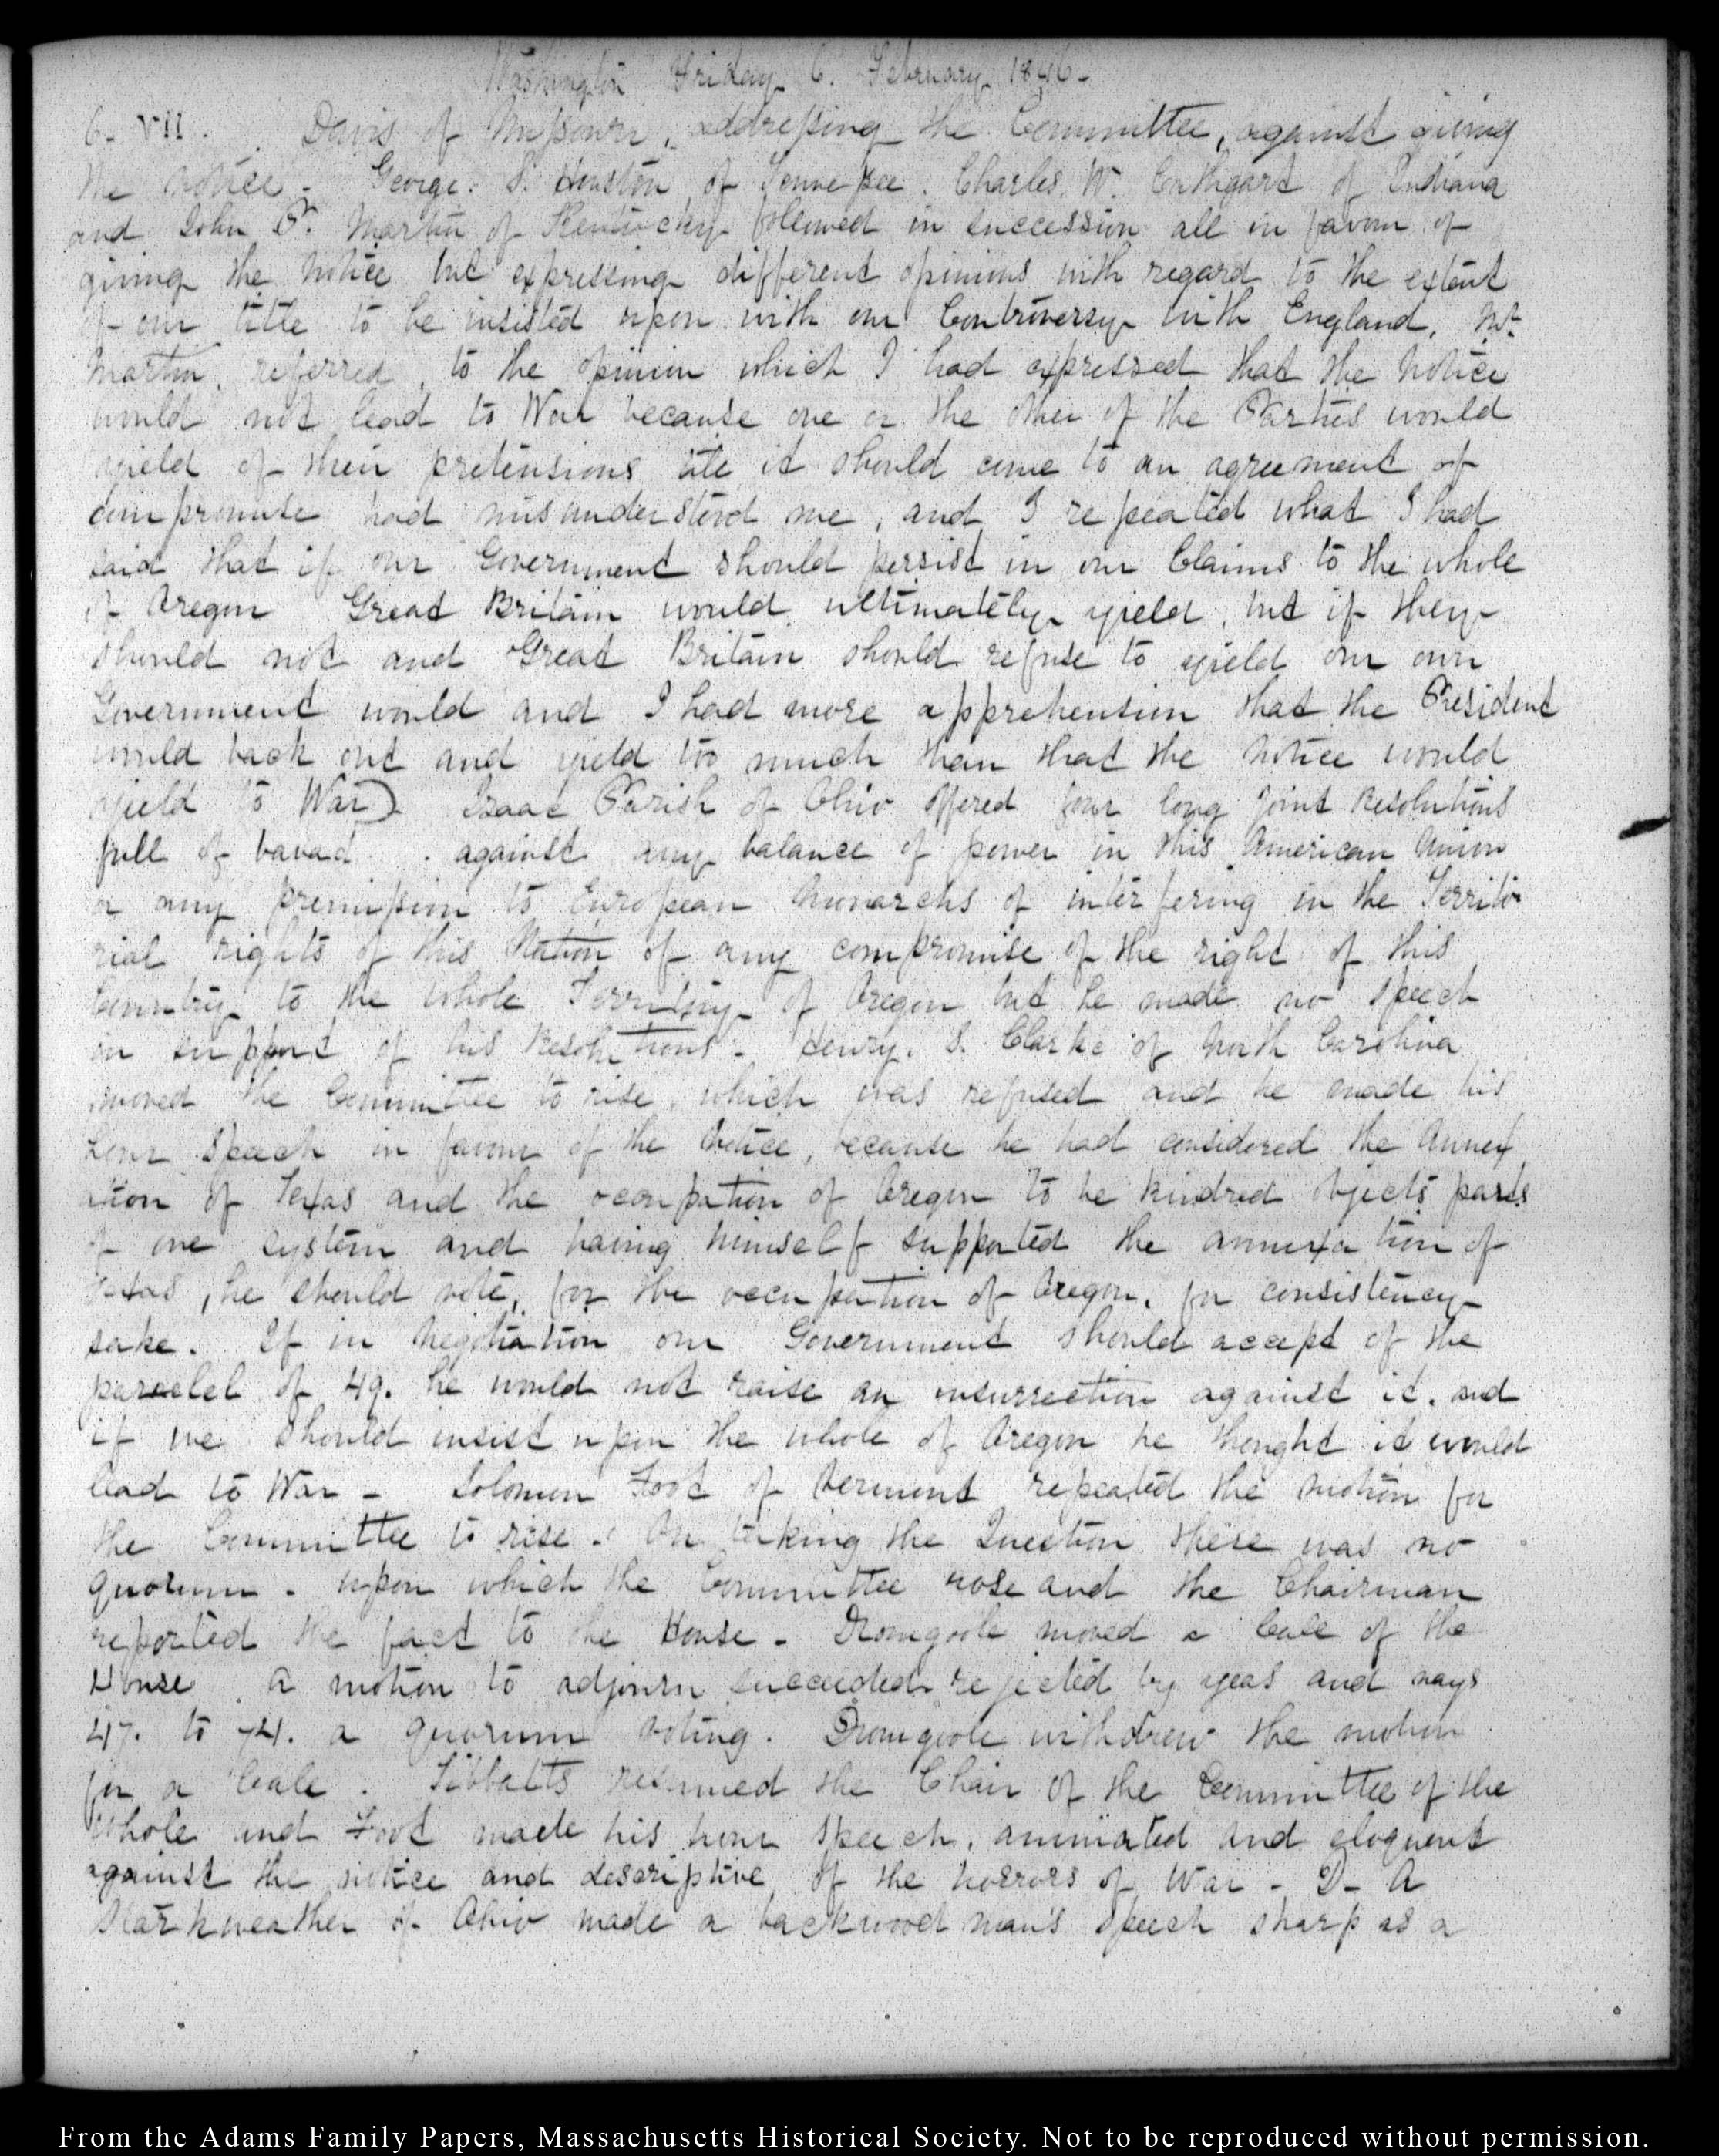 Washington Friday 6. February 1846-
6- VII. Davis of Missouri, addressing the Committee, against giving
the notice - George. S. Houston of Tennessee. Charles. W. Cathgart of Indiana
and John P. Martin of Kentucky followed in succession all in favour of
giving the Notice but expressing different opinions with regard to the extent
of our title to be insisted upon with our Controversy with England. Mr.
Martin, referred, to the opinion which I had expressed that the Notice
would not lead to War because one or the other of the Parties would
yield of their pretensions it should come to an agreement of
compromise had misunderstood me, and I repeated what I had
said that if our Government should persist in our Claims to the whole
of Oregon Great Britain would ultimately yield, but if they
should not and Great Britain should refuse to yield our own
Government would and I had more apprehension that the President
would back out and yield too much than that the Notice would
yield to War) Isaac Parish of Ohio offered four long joint Resolutions
full of bavad. against any balance of power in this American Union
or any premission to European Monarchs of interfering in the Territo
rial rights of this Nation of any compromise of the right of this
Country to the whole Territory of Oregon but he made no speech
in support of his Resolutions - Henry. S. Clarke of North Carolina
moved the Committee to rise, which was refused and he made his
hour speech in favour of the Notice, because he had considered the Annex
ation of Texas and the occupation of Oregon to be kindred objects parts
of one system and having himself supported the annexation of
Texas, he should vote, for the occupation of Oregon, for consistency
sake. If in Negotiation our Government should accept of the
paraelel of 49. he would not raise an insurrection against it. and
if we should insist upon the whole of Oregon he thought it would
lead to War - Solomon Foot of Vermont repeated the motion for
the Committee to rise. On taking the Question there was no
quorum - upon which the Committee rose and the Chairman
reported the fact to the House - Dromgoole moved a Cale of the
House. A motion to adjourn succeeded rejected by yeas and nays
47. to 74. a quorum voting. Dromgoole withdrew the motion
for a Cale. Tibbatts resumed the Chair of the Committee of the
Whole and Foot made his hour speech, animated and eloquent
against the notice and descriptive of the horrors of War - D- A
Starkweather of Ohio made a backwood man's speech sharp as a
From the Adams Family Papers, Massachusetts Historical Society. Not to be reproduced without permission.